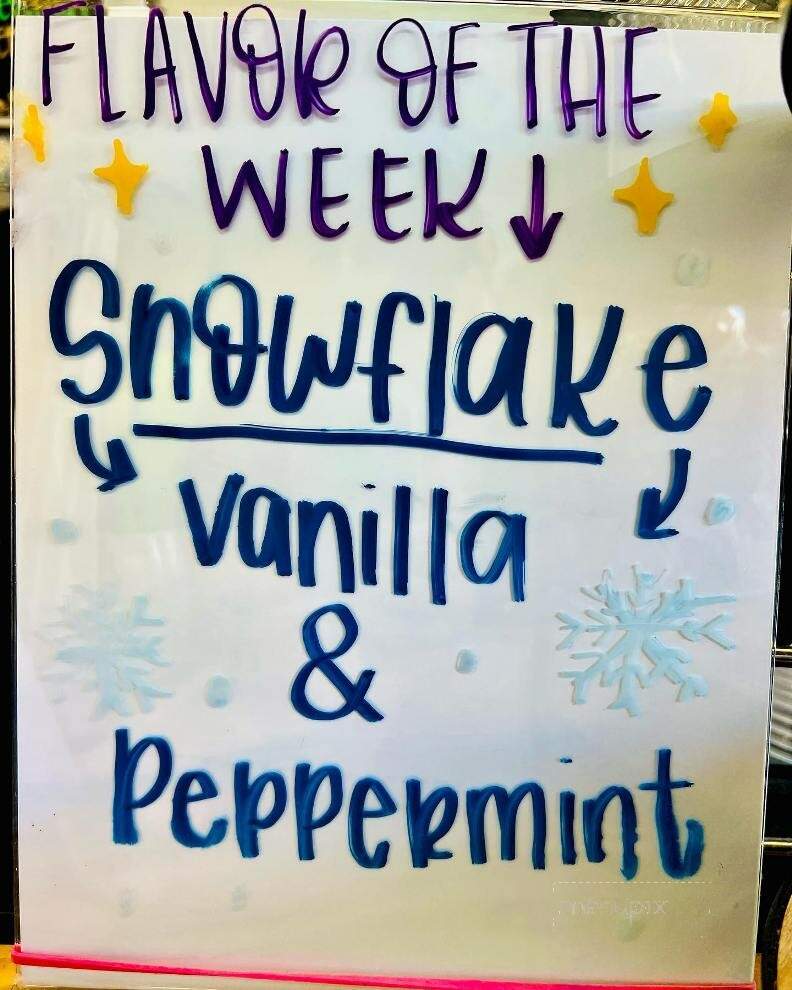 FLAVOR OF THE
WEEK ↓
Snowflake
vanilla
&
Peppermint